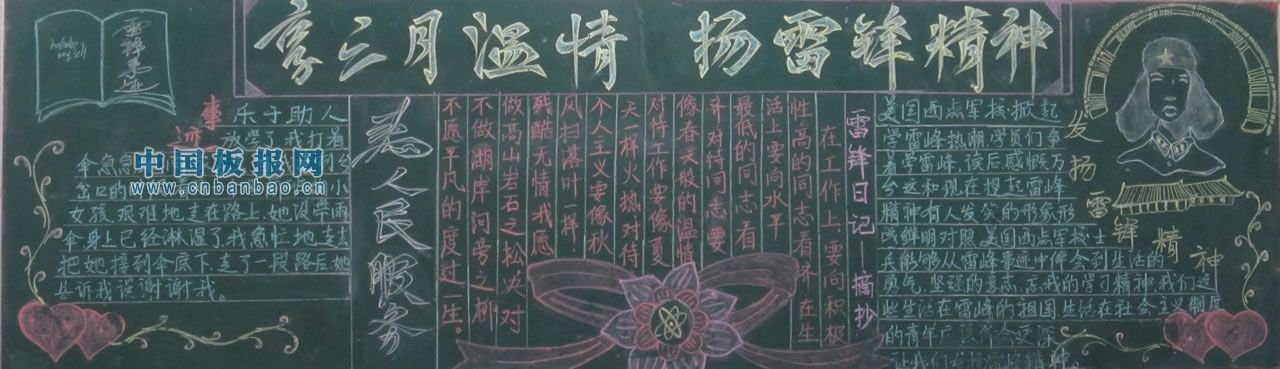 享三月温情 扬雷锋精神
事迹
乐于助人
放学了,我打着
伞急急
岔口的
小
女孩艰难地走在路上,她没带雨
伞身上已经淋湿了,我急忙地走去
把她接到伞底下,走了一段路后她
告诉我说谢谢我。
中国板报网
www.cnbanbao.cn
为人民服务
雷锋日记——摘抄
在工作上要向积极
性高的同志看齐在生
活上要向水平
最低的同志看
齐对待同志要
像春天般的温情
对待工作要像夏
天一样火热对待
个人主义要像秋
风扫落叶一样
残酷无情我愿
做高山岩石之松决对
不做湖岸河旁之柳
不愿平凡的度过一生。
美国西点军校掀起
学雷峰热潮,学员们争
着学雷峰,读后感慨万
分这和现在提起雷峰
精神有人发笑的形象形
成鲜明对照,美国西点军校士
兵能够从雷峰事迹中体会到生活的
勇气,坚强的意志,忘我的学习精神,我们这
些生活在雷峰的祖国生活在社会主义制度
的青年应
让我们发扬雷峰精神。
发扬雷锋精神